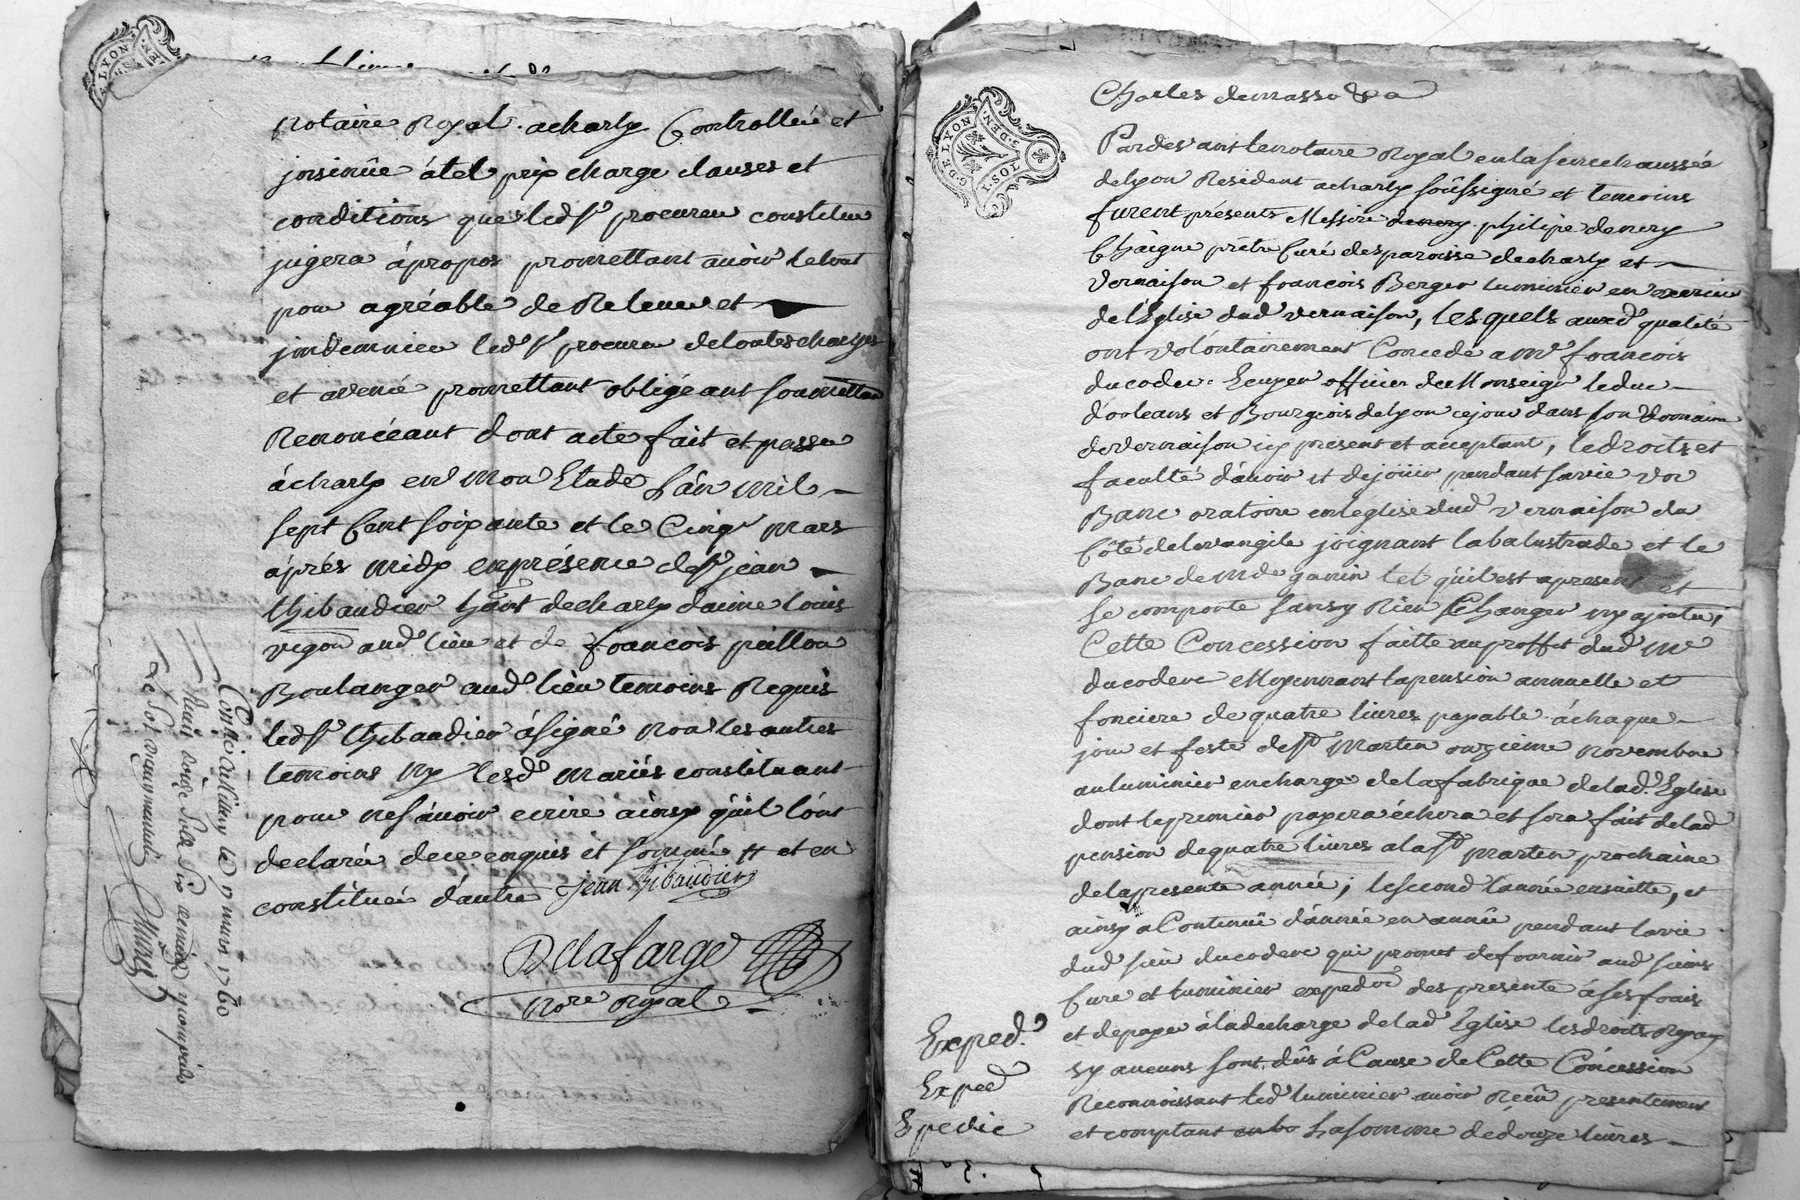 LYON
notaire Royal acharly Controllée et
jnsinüe átel prix charge clauses et
conditions que ledsr procureu constitué
jugera ápropos promettant auoir letout
pour agréable de Releuer et
jndemnier ledsr procureu detoutes charges
et avené promettant obligéant soumettant
Renoncéant dont acte fait et passé
ácharly en mon Etude L'án mil
sept Cent soixante et le Cinqe mars
áprés midy enprésence desr jean
thibaudier hant decharly daime louis
vigon aud lieu et de françois paillon
Boulanger aud lieu temoins Requis
ledsr thibaudier ásigné non les autres
temoins ny lesd mariés constituant
pour nesáuoir ecrire áinsy qúil lont
declaré dece enquis et sommé et en
constitué dautre Jean Thibaudier
Delafarge
Nore Royal
Controllé a Millery le 7 mars 1760
Reçu douze sols six deniers
G. DE LYON
2. SOLS
DEN.
Charles demasso &a
Pardevant lenotaire Royal enlasenechaussée
delyon Resident acharly soussigné et temoins
furent présents Messire philipe denery
Chaigne prêtre Curé desparoisse decharly et
Vernaison et françois Berger luminier en exercice
de l'Eglise dud vernaison, lesquels auxd qualité
ont volontairement Concedé a Mr françois
ducoder Ecuyer officier de Monseigr leduc
d'orleans et Bourgeois delyon cejour dans son domaine
devernaison icy présent et acceptant, ledroits et
faculté d'áuoir et dejoüir pendant savie vn
Banc oratoire enleglise dud vernaison du
Côté delevangile joignant labalustrade et le
Banc de mde ganin tel qúil est apresent et
se comporte sansy Rien Changer ny ajouter,
Cette Concession faitte auproffit dud Mr
ducoder Moyennant lapension annuelle et
fonciere de quatre liures payable áchaque
jour et feste de St Martin onzieme novembre
auluminier encharge delafabrique delad Eglise
dont lepremier payera échera et sera fait delad
pension dequatre liures alast martin prochaine
delapresente année, lesecond lannée ensuitte, et
ainsy aContinué d'année en année pendant lavie
dud sieur ducoder qui promet defournir aud sieurs
Curé et luminier expedon des presente ásesfrais
et depayer áladecharge delad Eglise lesdroits Royaux
sy aucuns sont dûs á Cause de Cette Concession
Reconnoissant led luminier auoir Reçû presentement
et comptant La somme dedouze liures
Exped.
Exped
Expedié